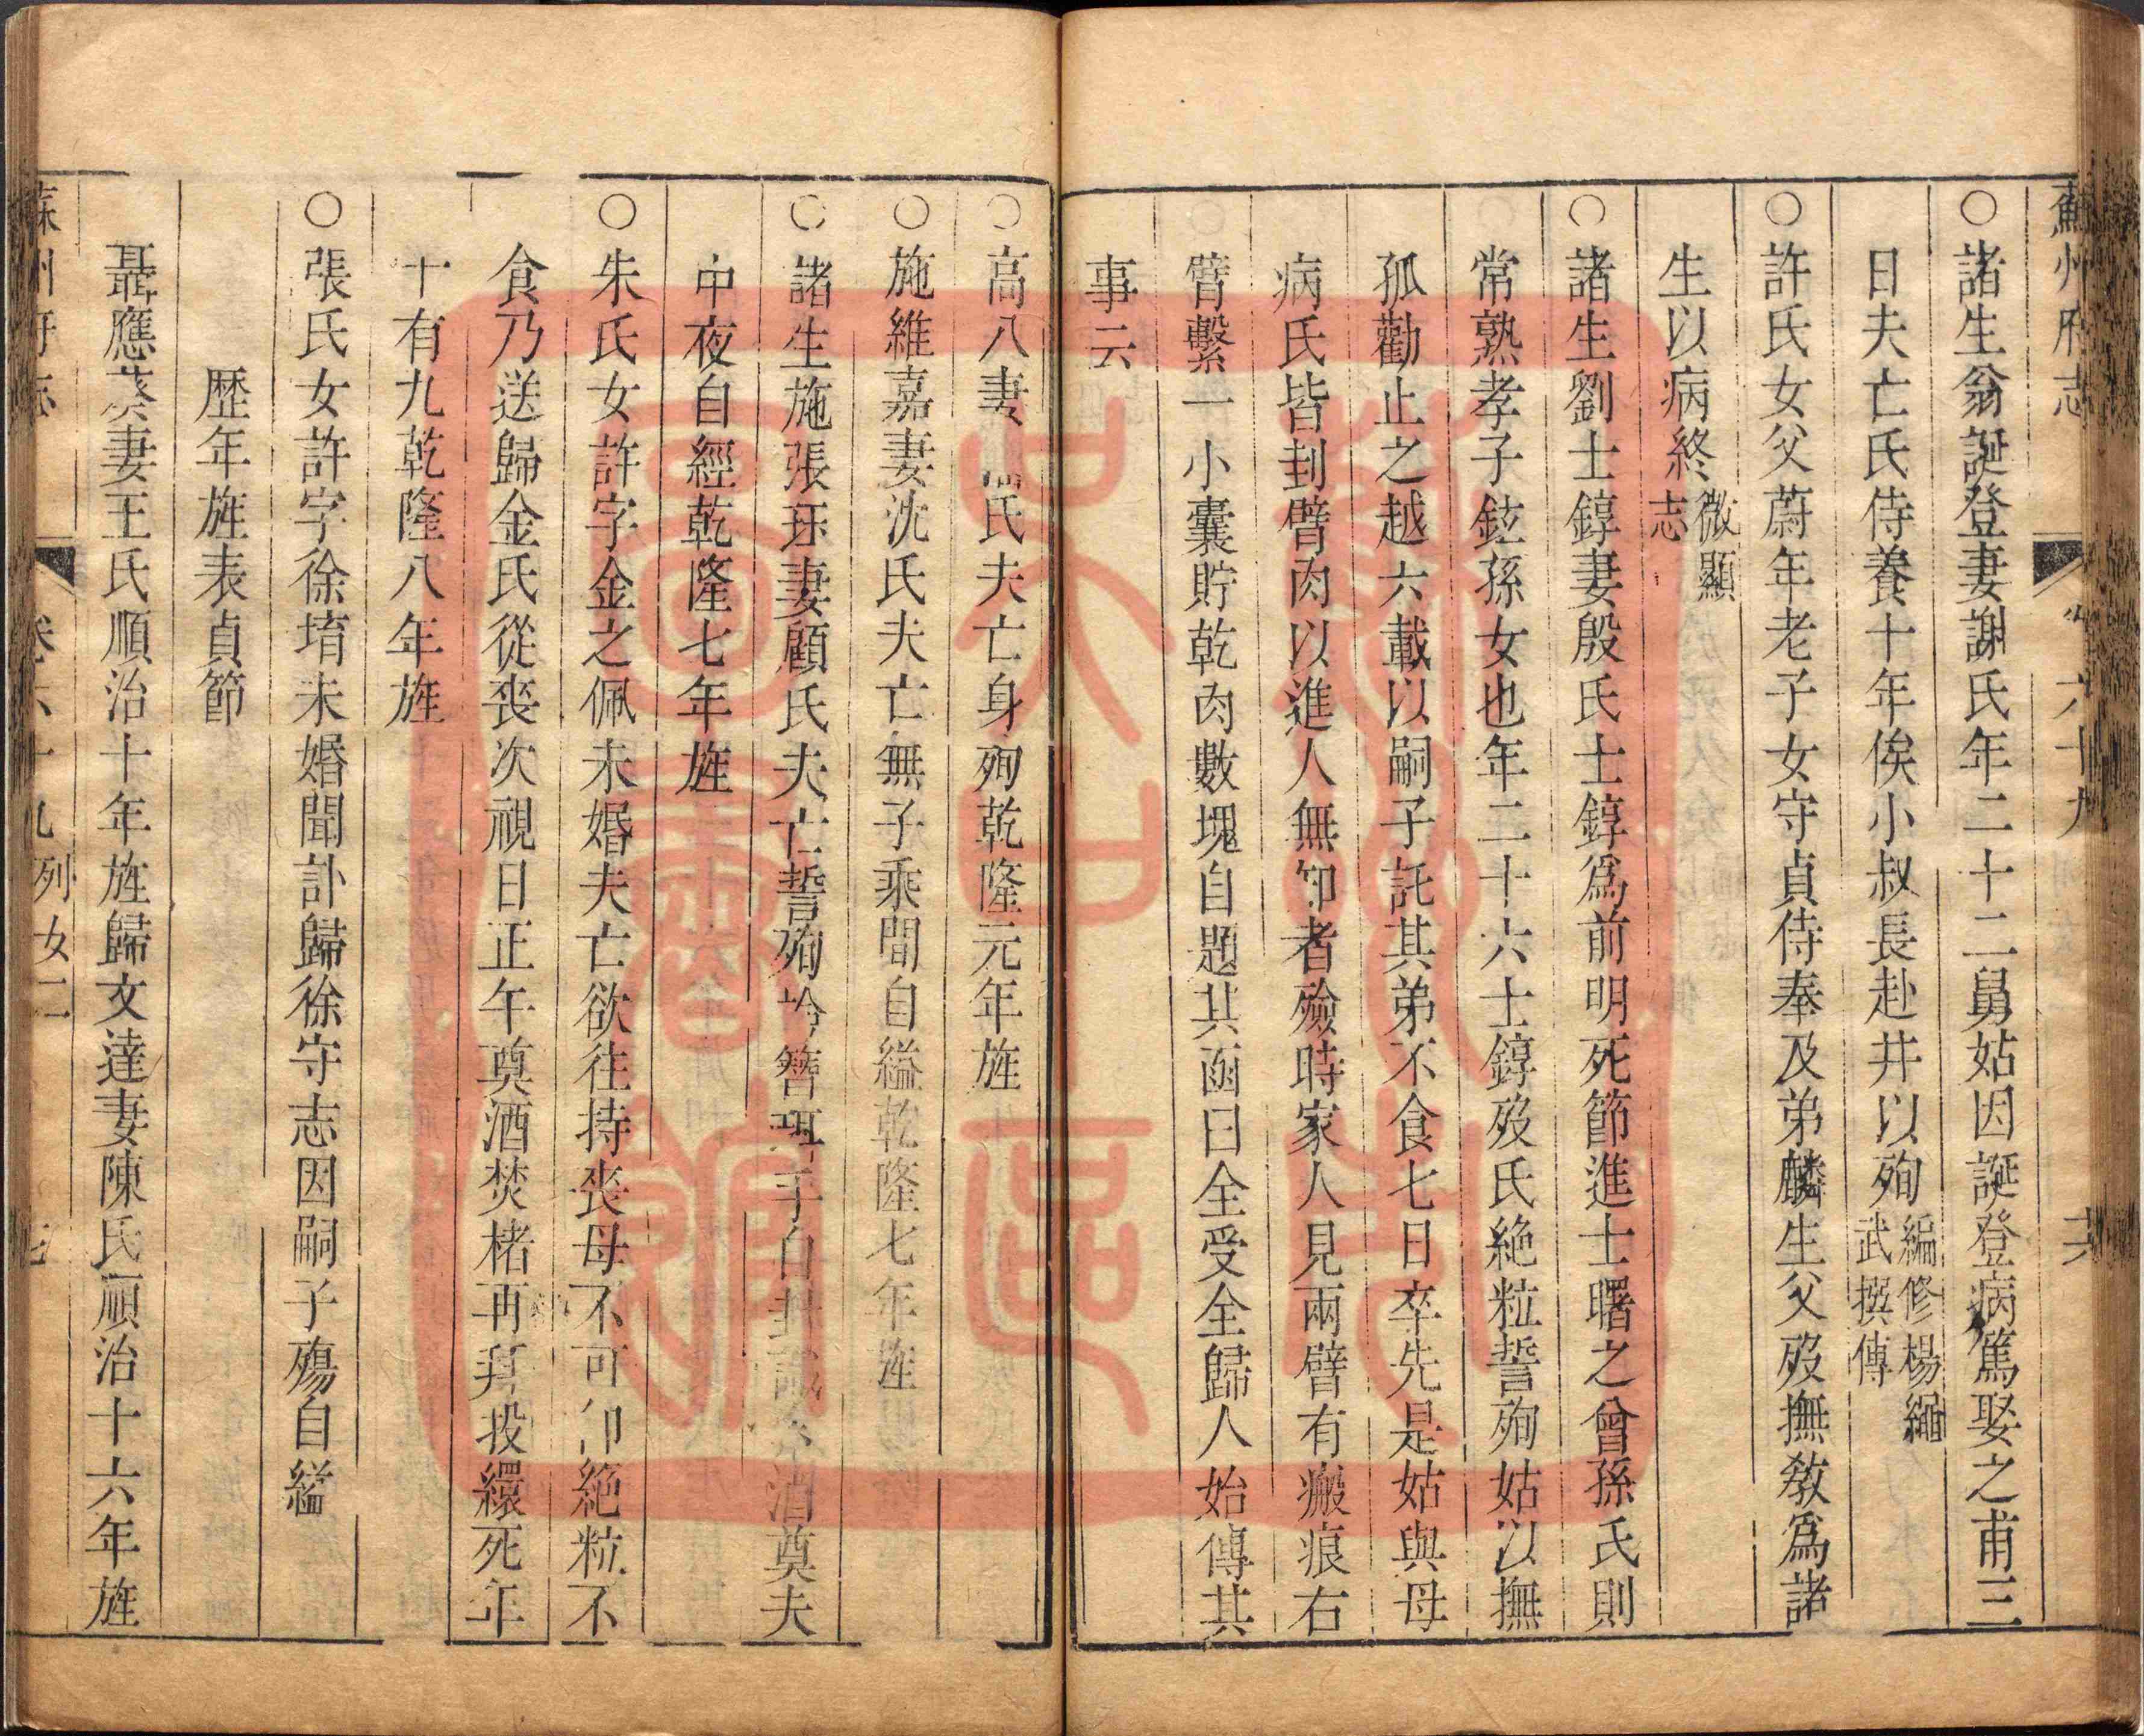 蘇州府志 卷六十九 六
○諸生翁誕登妻謝氏年二十二舅姑因誕登病篤娶之甫三
日夫亡氏侍養十年俟小叔長赴井以殉編修楊繩武撰傳
○許氏女父蔚年老子女守貞侍奉及弟麟生父歿撫教爲諸
生以病終微顯志
○諸生劉士錞妻殷氏士錞爲前明死節進士曙之曾孫氏則
常熟孝子鉉孫女也年二十六士錞歿氏絶粒誓殉姑以撫
孤勸止之越六載以嗣子託其弟不食七日卒先是姑與母
病氏皆刲臂肉以進人無知者殮時家人見兩臂有瘢痕右
臂繫一小囊貯乾肉數塊自題其函曰全受全歸人始傳其
事云
○高八妻氏夫亡身殉乾隆元年旌
○施維嘉妻沈氏夫亡無子乘間自縊乾隆七年旌
○諸生施張珏妻顧氏夫亡誓殉簪珥手自封酒奠夫
中夜自經乾隆七年旌
○朱氏女許字金之佩未婚夫亡欲往持喪母不可卽絶粒不
食乃送歸金氏從喪次視日正午奠酒焚楮再拜投繯死年
十有九乾隆八年旌
○張氏女許字徐堉未婚聞訃歸徐守志因嗣子殤自縊
歷年旌表貞節
聶應葵妻王氏順治十年旌歸文達妻陳氏順治十六年旌
蘇州府志 卷六十九列女二